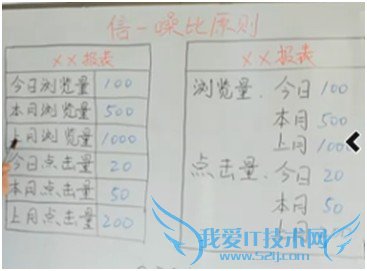 信-噪比原则
××报表
今日浏览量 100
本月浏览量 500
上月浏览量 1000
今日点击量 20
本月点击量 50
上月点击量 200
××报表
浏览量. 今日 100
本月 500
上月 1000
点击量. 今日 20
本月 50
上月
我爱IT技术网
www.52ij.com